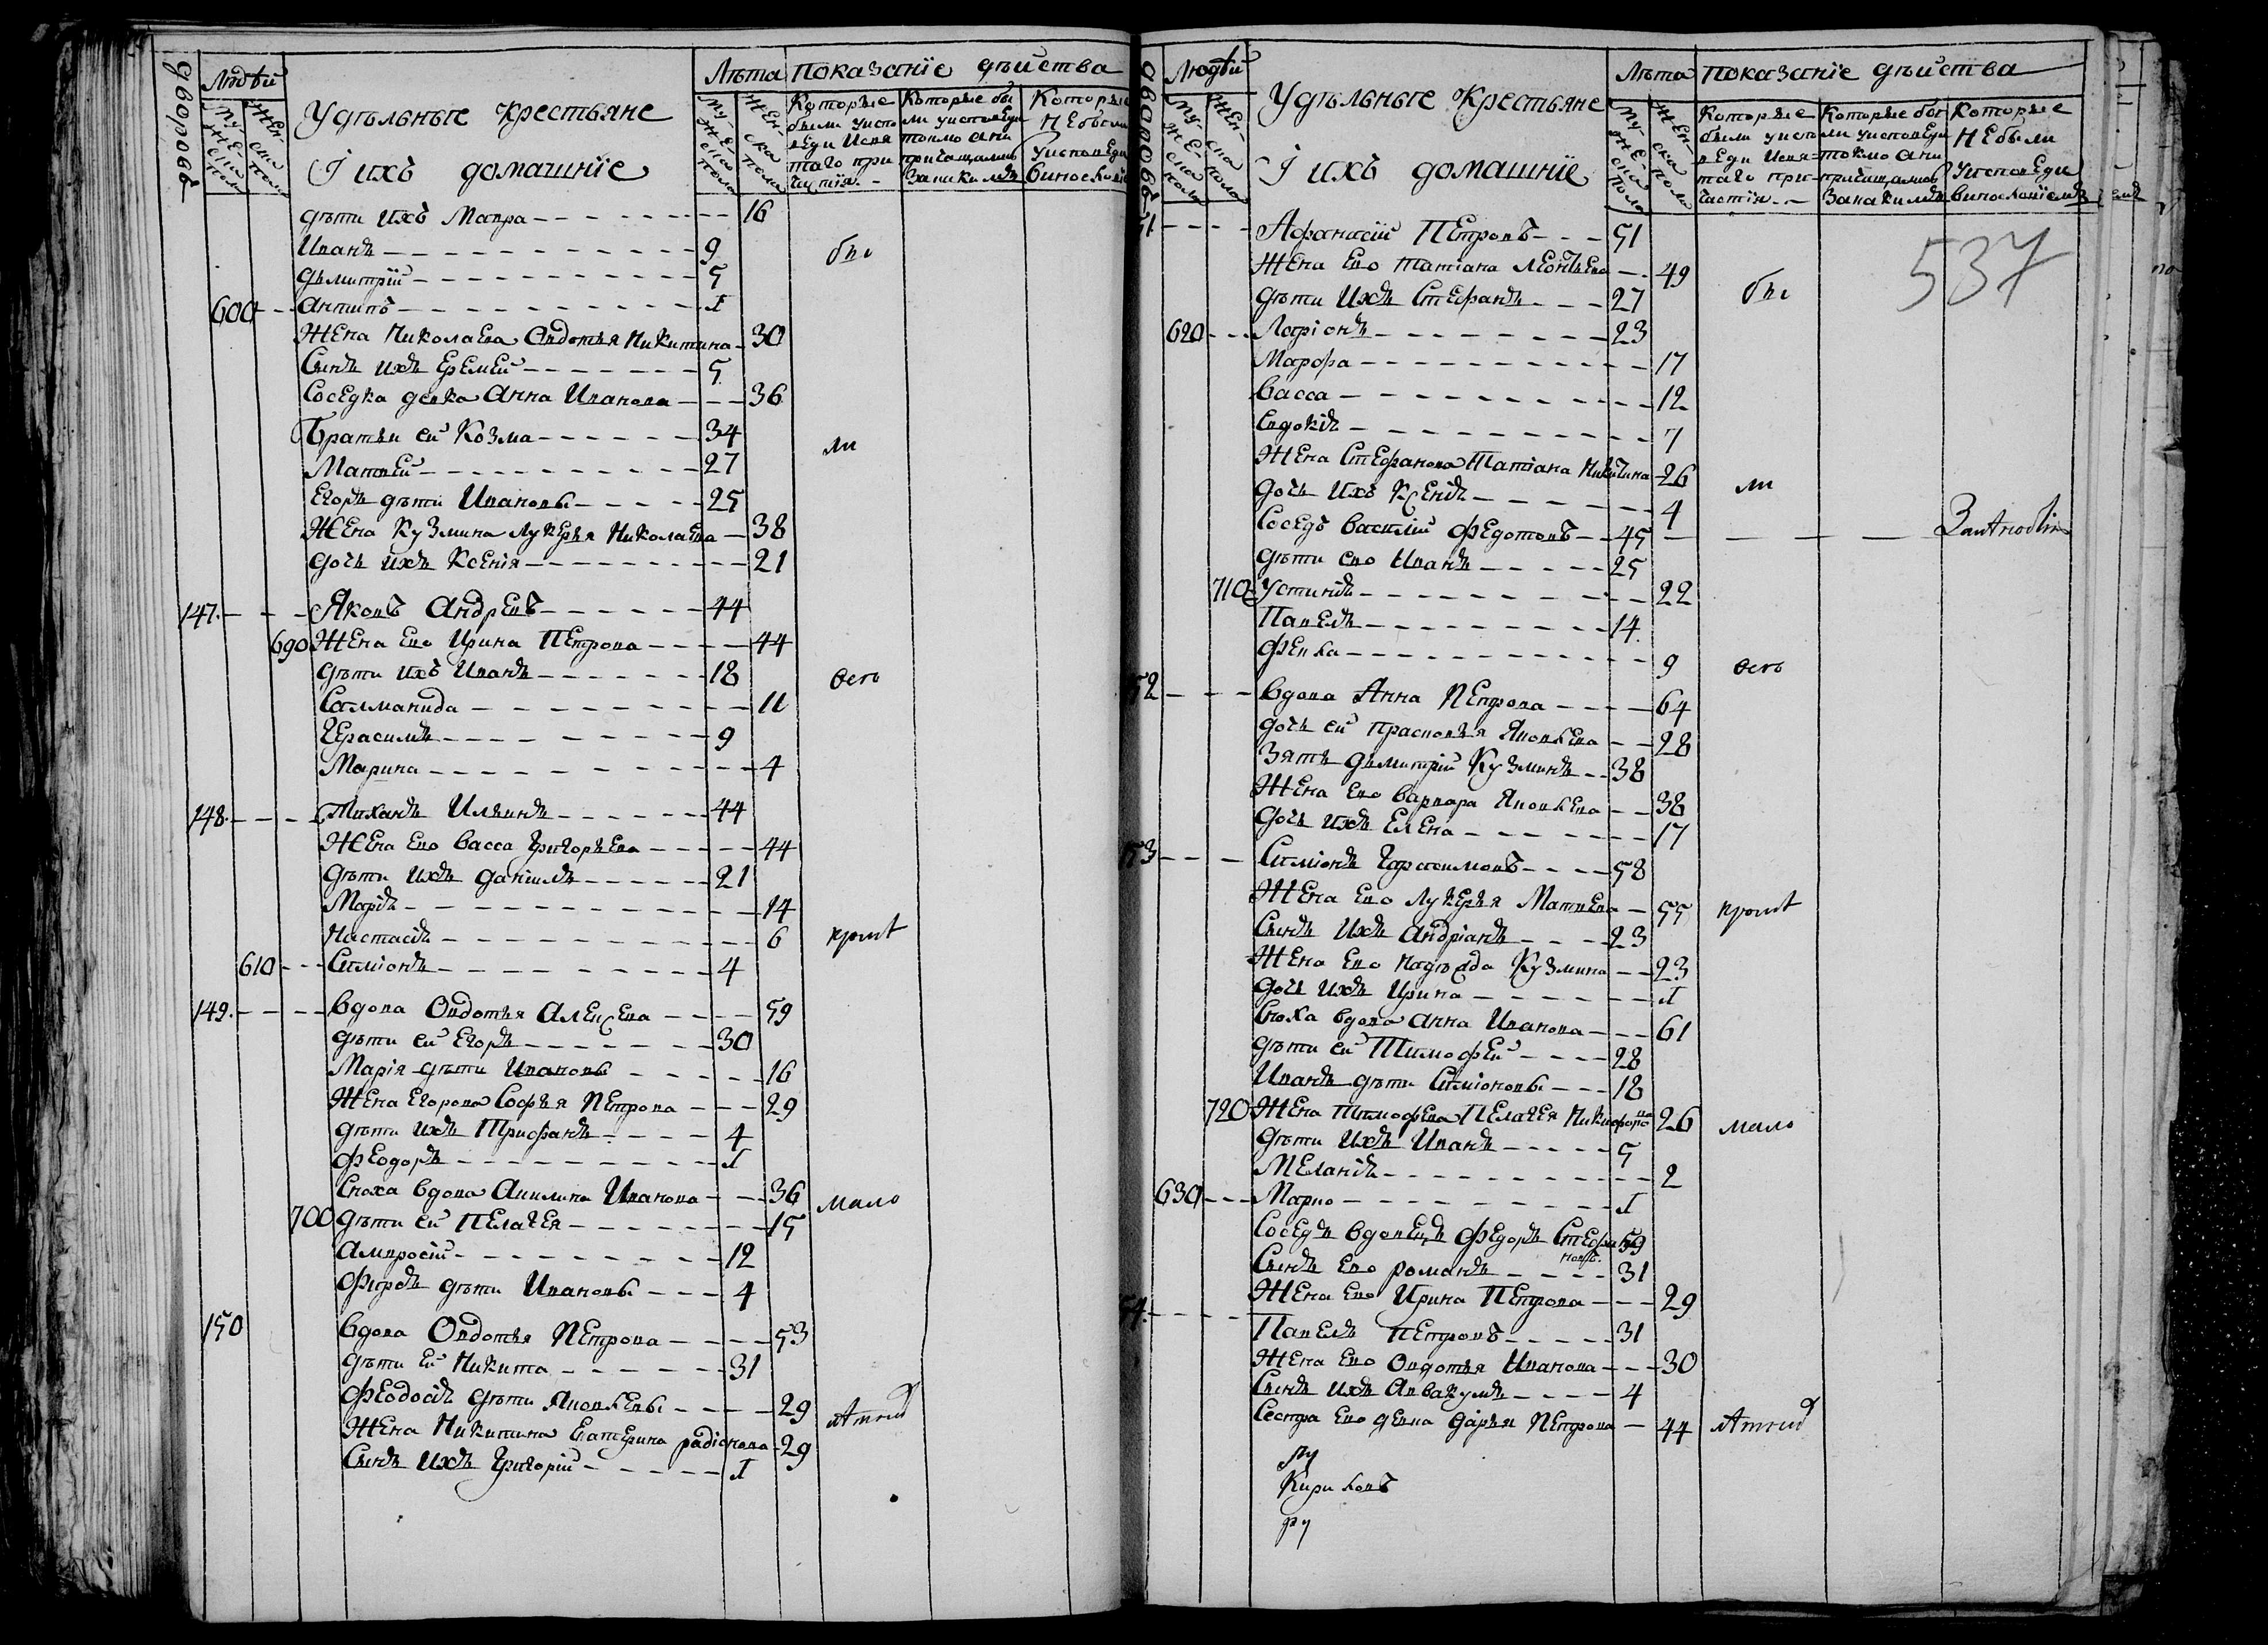 дворовъ
Людей
Му-
же-
ска
пола
Жен-
ска
пола
Удѣльные крестьяне
І ихъ домашніе
Лѣта
Му-
же-
ска
пола
Жен-
ска
пола
показаніе дѣйства
Которые
были уиспо
веди исвя
таго при
частія
Которые бы
ли уисповеди
токмо они
причащались
Заникимъ
Которые
небыли
Уисповеди
дѣти ихъ Мавра 16
Иванъ 9
Дьмитрій 5
600 Антипъ 1
Жена Николаева Овдотья Никитина 30
Сынъ ихъ Еремей 5
Соседка девка Анна Иванова 36
Братьи ей Козма 34
Матвей 27
Егоръ дѣти Ивановы 25
Жена Кузмина Лукерья Николаева 38
дочь ихъ Ксенія 21
147 Яковъ Андревъ 44
690 Жена ево Ирина Петрова 44
дѣти ихъ Иванъ 18
Саламанида 11
Герасимъ 9
Марина 4
148 Тиханъ Ильинъ 44
Жена ево Васса Григорьева 44
дѣти ихъ Данилъ 21
Марія 14
Настасія 6
610 Симіонъ 4
149 Вдова Овдотья Алексева 59
дѣти ей Егоръ 30
Марія дѣти Ивановы 16
Жена Егорова Софья Петрова 29
дѣти ихъ Трифанъ 4
Феодоръ 1
Сноха вдова Акилина Иванова 36
700 дѣти ей Пелагея 15
Амвросій 12
Фирсъ дѣти Ивановы 4
150 Вдова Овдотья Петрова 53
дѣти ей Никита 31
Феодосія дѣти Яковлевы 29
Жена Никитина Катерина радіонова 29
Сынъ ихъ Григорій 1
бы
ли
всѣ
кромѣ
мало
лѣтнихъ
дворовъ
Людей
Му-
же-
ска
пола
Жен-
ска
пола
Удѣльные Крестьяне
І ихъ домашніе
Лѣта
Му-
же-
ска
пола
Жен-
ска
пола
показаніе дѣйства
Которые
были уиспо
веди исвя-
таго при-
частія
Которые бы
ли уисповеди
токмо они
причащались
Заникимъ
Которые
небыли
Уисповеди
537
51 Афанасій Петровъ 51
Жена ево Татіана Леонтьева 49
дѣти ихъ Стефанъ 27
620 Ларіонъ 23
Марфа 17
Васса 12
Евдокія 7
Жена Стефанова Татіана Никитина 26
дочь ихъ Ксенія 4
Соседъ Василій Федотовъ 45
дѣти ево Иванъ 25
710 Устинія 22
Павелъ 14
Фекла 9
52 Вдова Анна Петрова 64
дочь ей Прасковья Яковлева 28
Зять Дьмитрій Кузминъ 38
Жена ево Варвара Яковлева 38
дочь ихъ Елена 17
53 Симіонъ Герасимовъ 58
Жена ево Лукерья Матвева 55
Сынъ ихъ Андріанъ 23
Жена ево Надежда Кузмина 23
дочь ихъ Ирина 1
Сноха вдова Анна Иванова 61
дѣти ей Тимофей 28
Иванъ дѣти Симіоновы 18
720 Жена Тимофева Пелагея Никифорова 26
дѣти ихъ Иванъ 5
Меланія 2
630 Марко 1
Соседъ вдовецъ Федоръ Стефановъ 59
Сынъ ево романъ 31
Жена ево Ирина Петрова 29
54 Павелъ Петровъ 31
Жена ево Овдотья Иванова 30
Сынъ ихъ Аввакумъ 4
Сестра ево девка Дарья Петрова 44
бы
ли
всѣ
кромѣ
мало
лѣтнихъ
Кириловъ